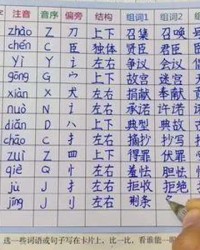 注音 音序 偏旁 结构 组词1 组词2
zhào Z 刀 上下 召集 召唤
chén C 臣 独体 贤臣 君臣
yì Y 讠 左右 争议 会议
gāng G 上下
xiàn X 犬 左右 捐献 奉献
nuò N 讠 左右 承诺 许诺
diǎn D 八 上下 典型 典故
chāo C 扌 左右 摘抄 抄写
zuì Z 四 上下 得罪 罪
qiè Q 忄 左右 羞怯 胆怯
jù J 扌 左右 拒收 拒绝
jīng J 刂 左右 荆条
选一些词语或句子写在卡片上，比一比，看谁能一眼